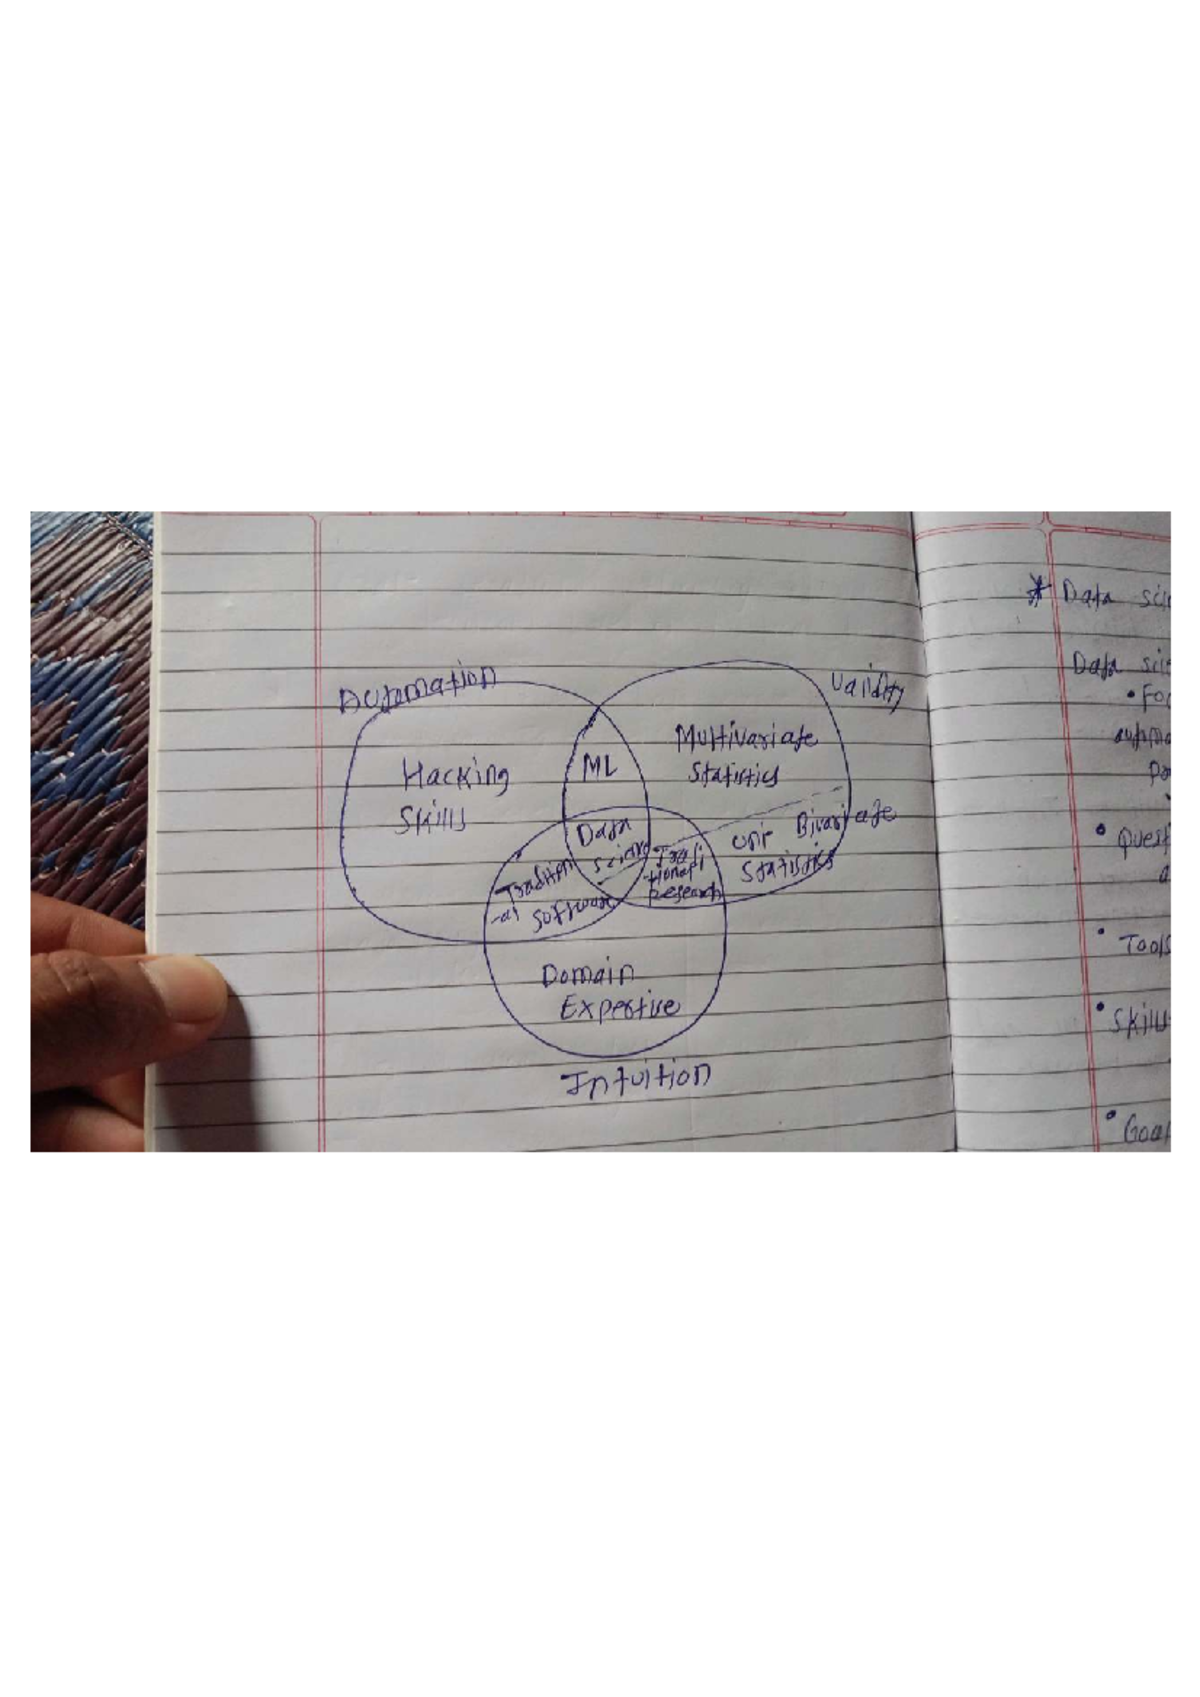 Automation
Validity
Hacking
Skills
ML
Multivariate
Statistics
Data
Science
Tradition
-al
Software
Tradi
tional
Research
Uni Bivariate
Statistics
Domain
Expertive
Intuition
* Data
Data
•
• Quest
• Tools
• Skill
• Goal